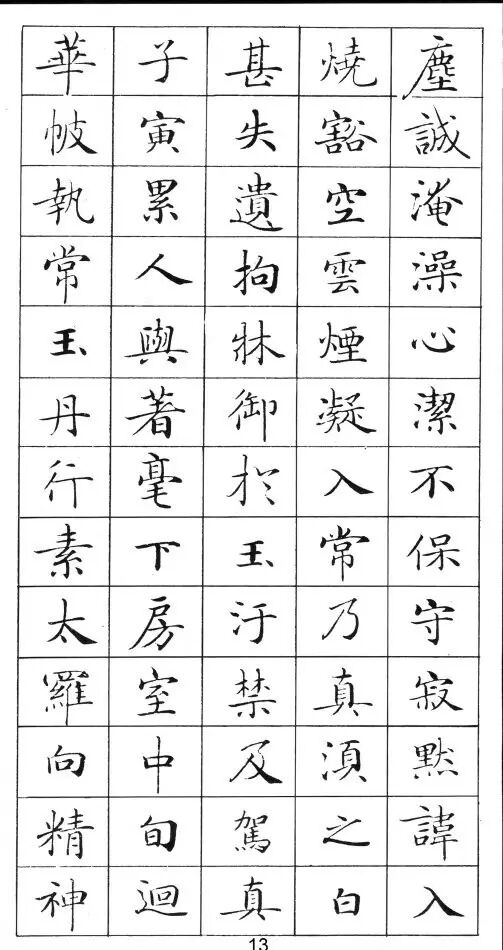 塵誠淹澡心潔不保守寂默諱入
燒豁空雲煙凝入常乃真湏之白
甚失遺拘牀御於玉汙禁及駕真
子寅累人輿著毫下房室中旬迴
華帔執常玉丹行素太羅向精神
13